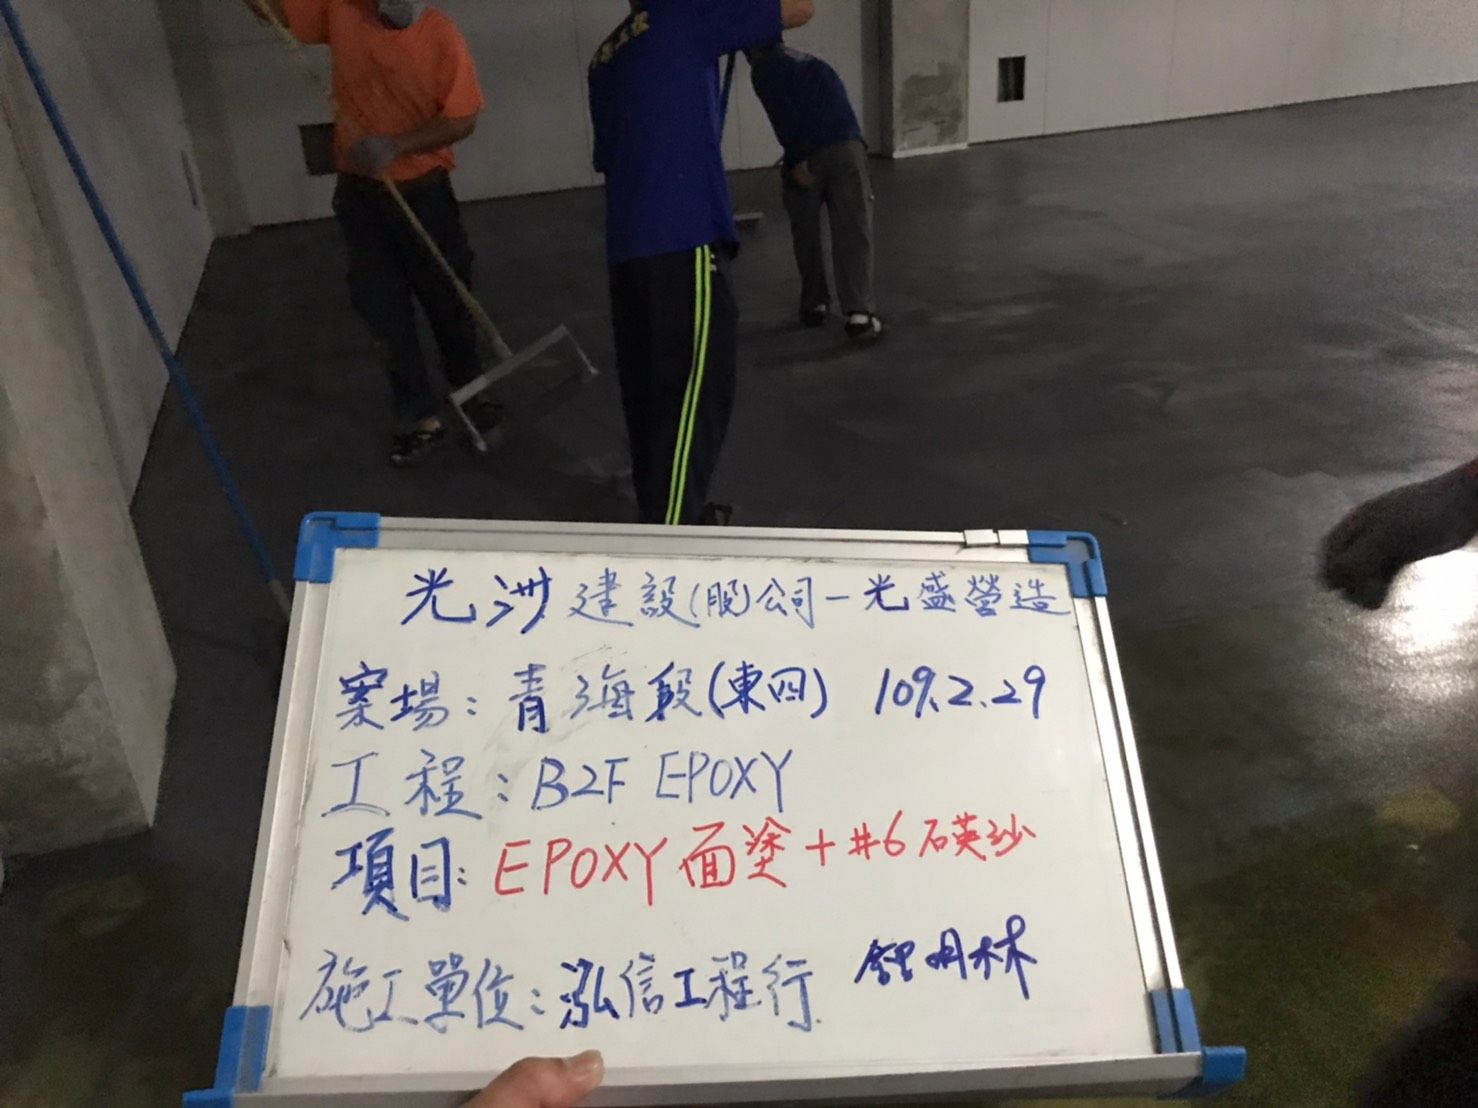 光洲建設(股)公司-光盛營造
案場:青海段(東四) 109.2.29
工程:B2F EPOXY
項目:EPOXY面塗+#6石英沙
施工單位:泓信工程行 鍾明林